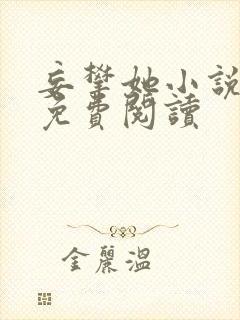 妄攀她小說
免費閱讀
金麗溫